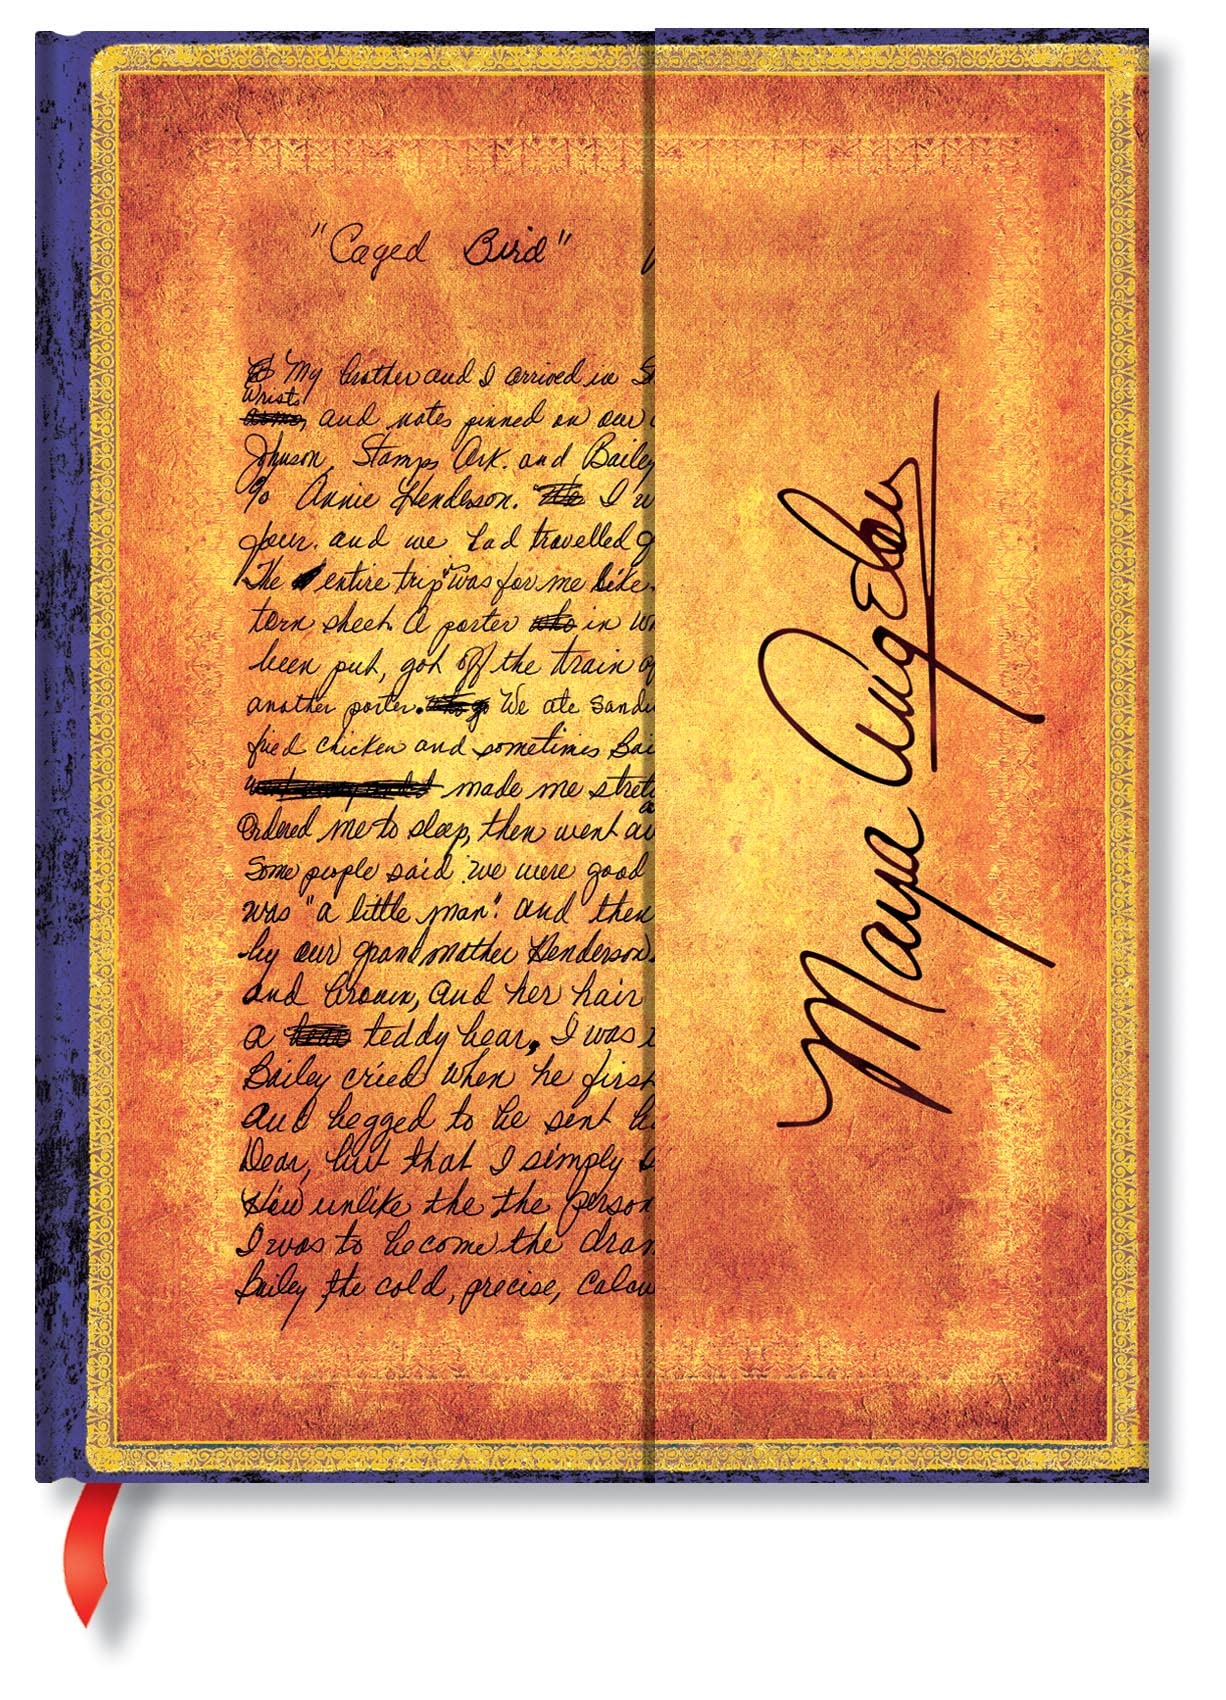 "Caged Bird"
My brother and I arrived in S
Wrists
and notes pinned on our
Johnson, Stamps Ark. and Bailey
c/o Annie Henderson. I w
four. and we had travelled
The entire trip was for me like
torn sheet. A porter in wh
been put, got off the train of
another porter. We ate sandw
fried chicken and sometimes Bai
made me stretc
Ordered me to sleep, then went aw
Some people said we were good
was "a little man". and then
by our grandmother Henderson.
and brown, and her hair
a teddy bear, I was
Bailey cried when he first
and begged to be sent h
Dear, but that I simply
How unlike the the person
I was to become the dram
Bailey the cold, precise, Calcu
Maya Angelou